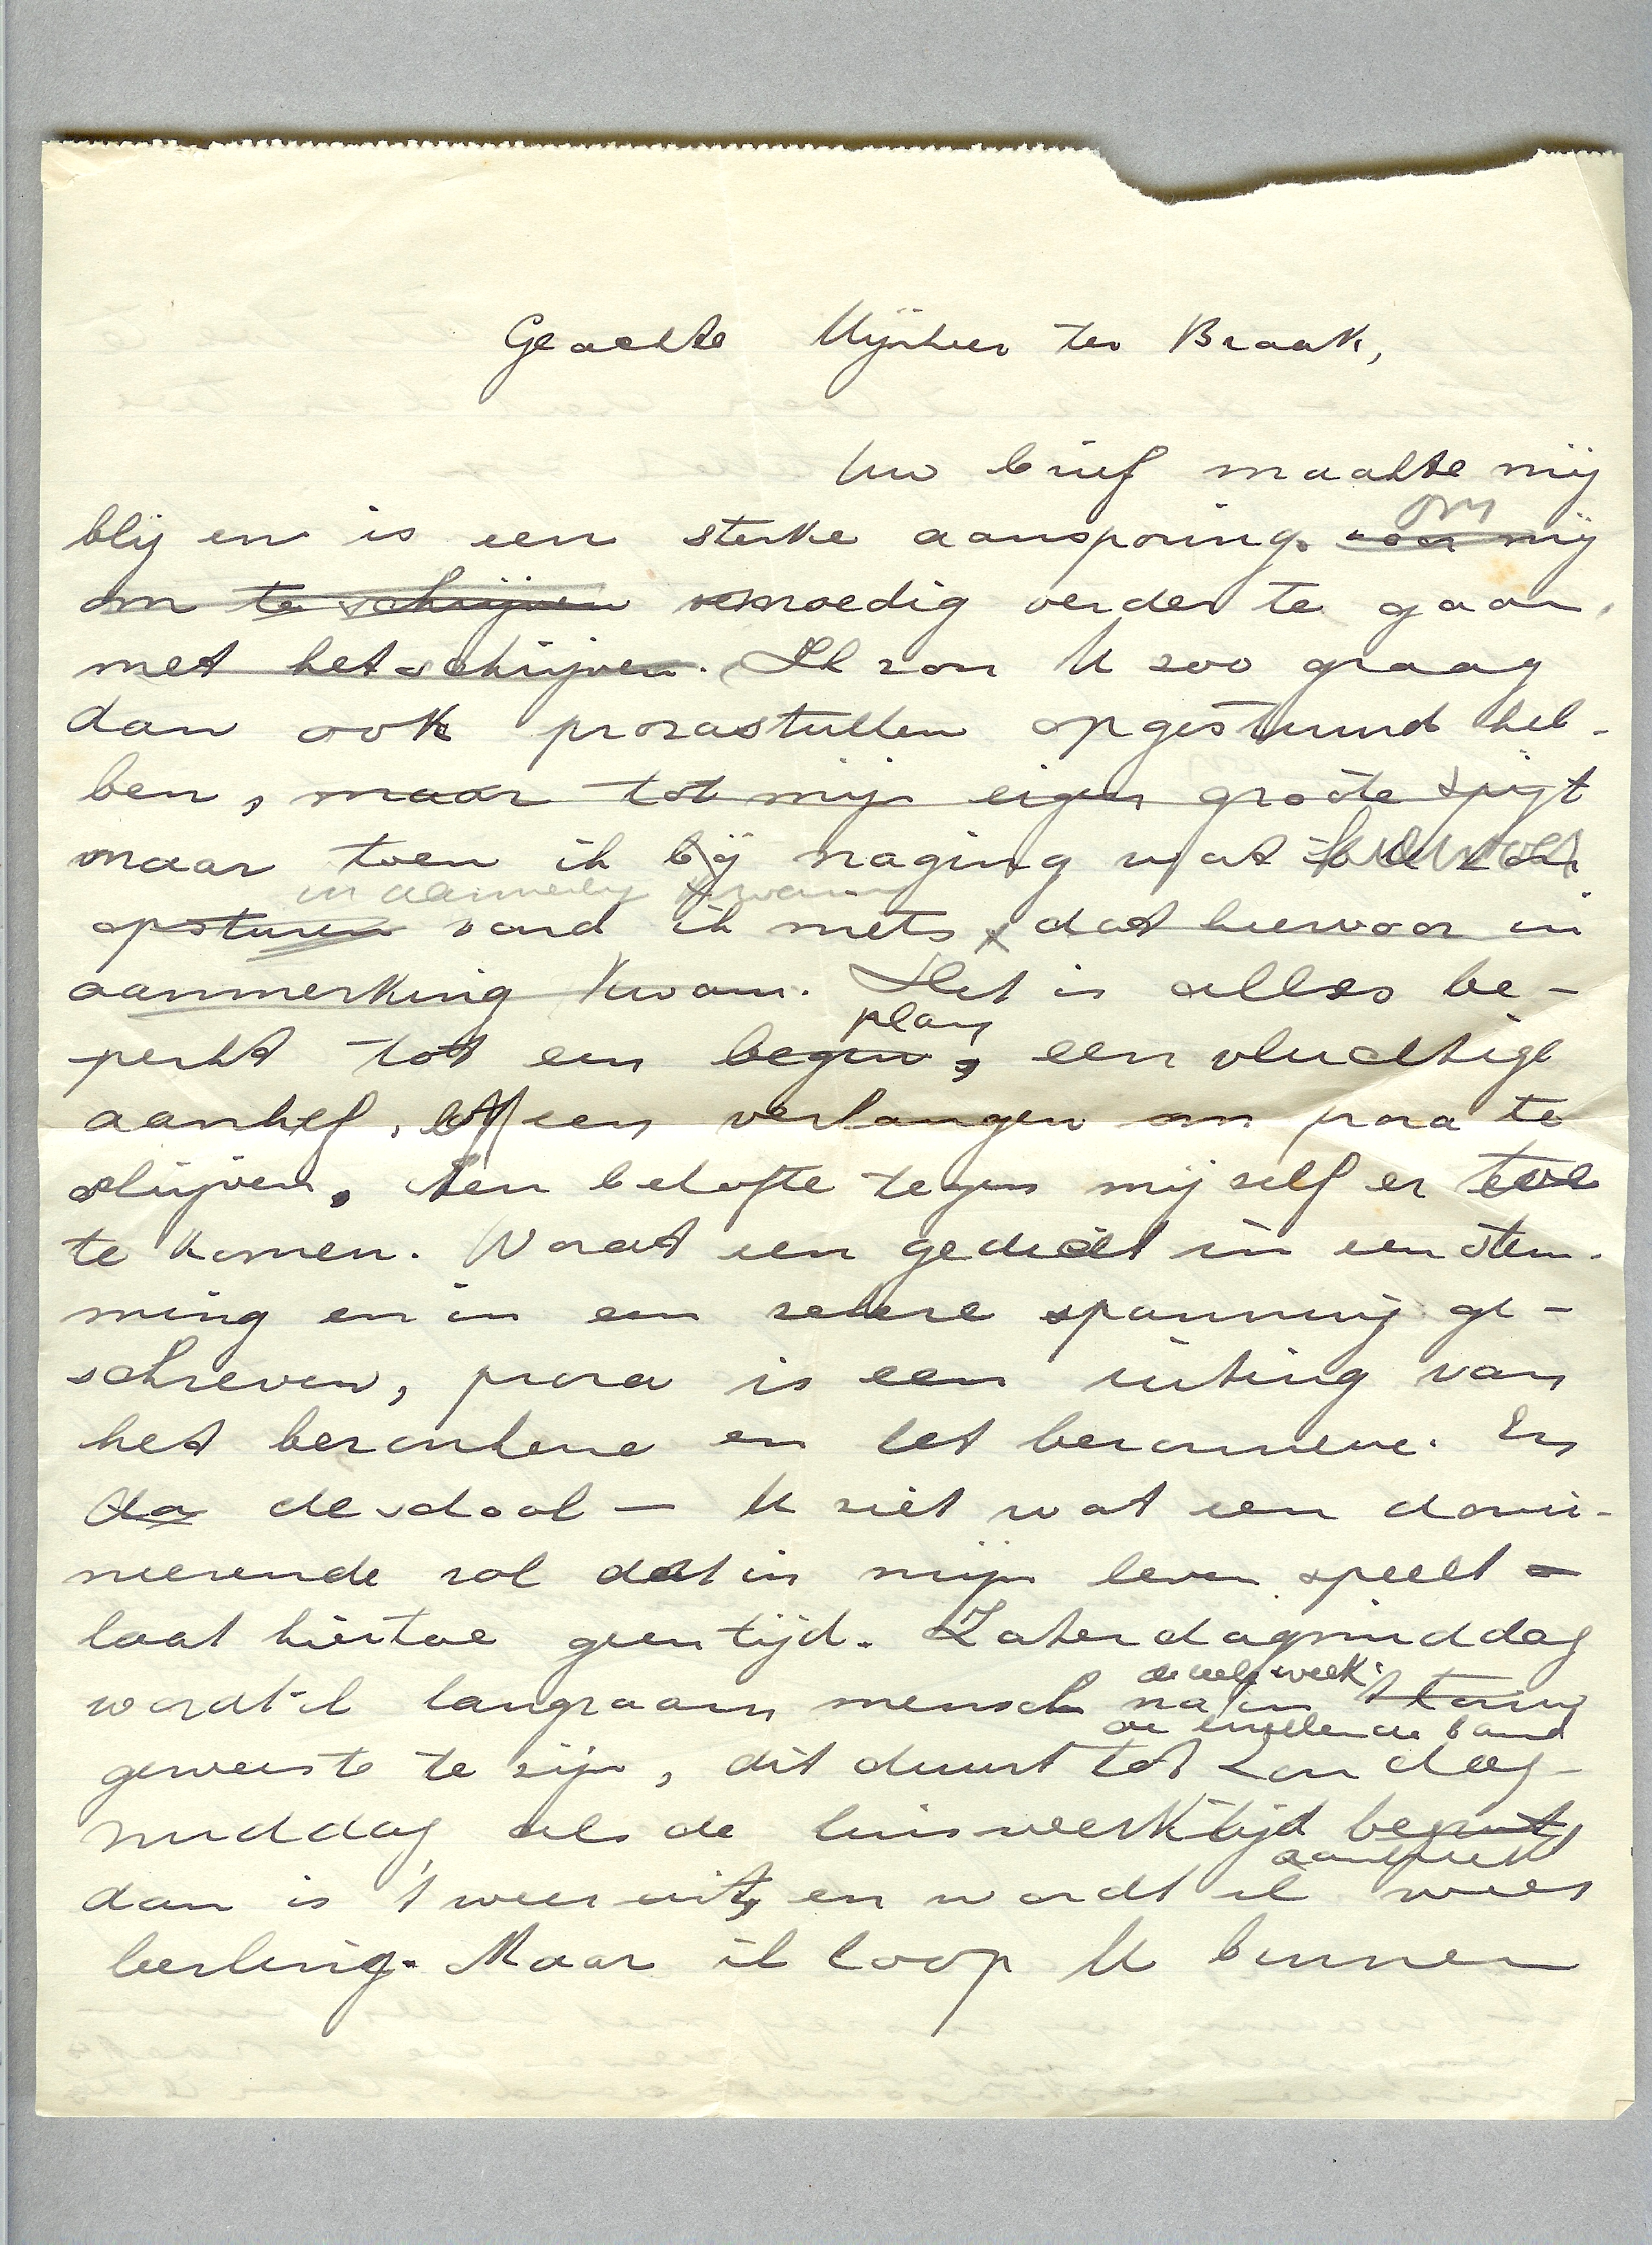 Geachte Mijnheer ter Braak,
Uw brief maakte mij
om
blij en is een sterke aansporing. voor mij
om te schrijven moedig verder te gaan,
met het schrijven. Ik zou U zoo graag
dan ook prozastukken opgestuurd heb-
ben, maar tot mijn eigen groote spijt
maar toen ik bij naging wat ik U zou
in aanmerking kwam
opsturen vond ik niets dat hiervoor in
aanmerking kwam. Het is alles be-
plan
perkt tot een begin, een vluchtige
aanhef, of een verlangen om proza te
schrijven, een belofte tegen mijzelf er toe
te komen. Wordt een gedicht in een stem-
ming en in een zekere spanning ge-
schreven, proza is een uiting van
het bezonkene en het bezonnene. En
da de school — U ziet wat een domi-
neerende rol dat in mijn leven speelt —
laat hiertoe geen tijd. Zaterdagmiddag
de heele week
wordt ik langzaam mensch na in
geweest te zijn, dit duurt tot Zondag-
middag als de huiswerktijd begint
aanbreekt
dan is 't weer uit, en wordt ik weer
leerling. Maar ik loop U binnen